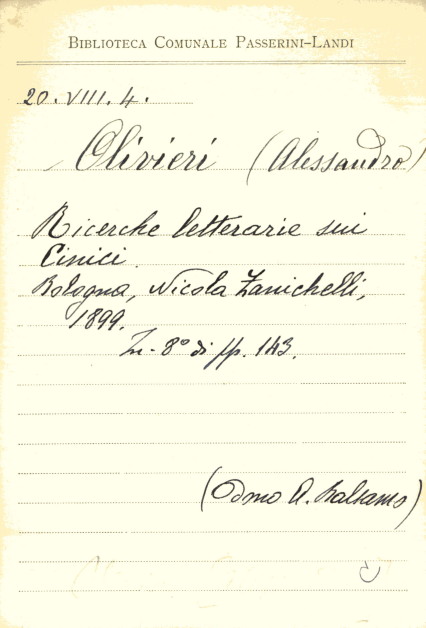 BIBLIOTECA COMUNALE PASSERINI-LANDI
20. VIII. 4.
Olivieri (Alessandro)
Ricerche letterarie sui
Cinici.
Bologna, Nicola Zanichelli,
1899.
In-8º di pp. 143.
(Dono A. Balsamo)